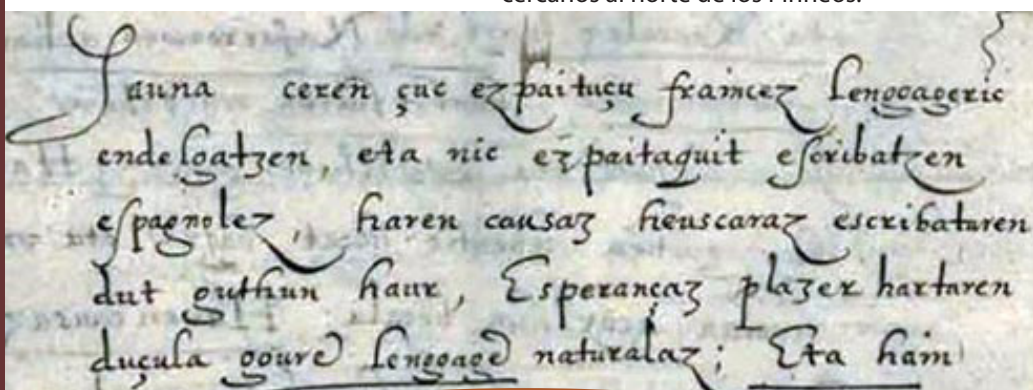 cercanos al norte de los Pirineos.
Jauna ceren çuc ezpaituçuframcez Lengoageric
endelgatzen, eta nic ezpaitaquit escribatzen
espagnolez, haren causaz heuscaraz escribaturen
dut guthun haur, Esperançaz plazer harturen
duçula goure lengoage naturalaz; Eta hain